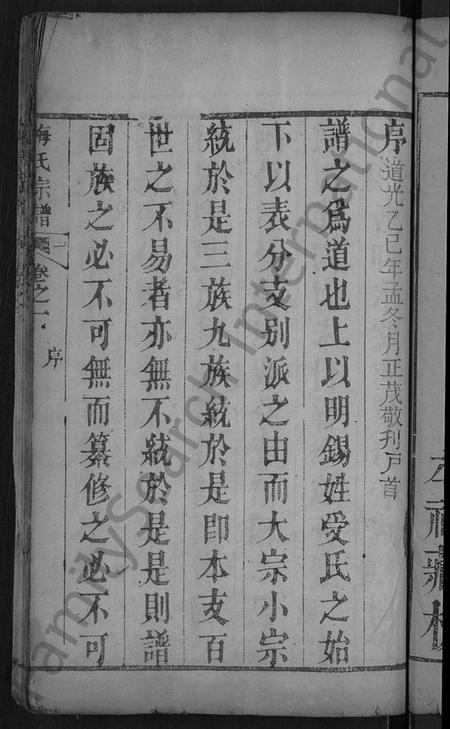 序 道光乙巳年孟冬月正茂敬刊户首
譜之為道也上以明錫姓受氏之始
下以表分支别派之由而大宗小宗
統於是三族九族統於是即本支百
世之不易者亦無不統於是是則譜
固族之必不可無而纂修之必不可
梅氏宗譜 卷之一 序
FamilySearch International